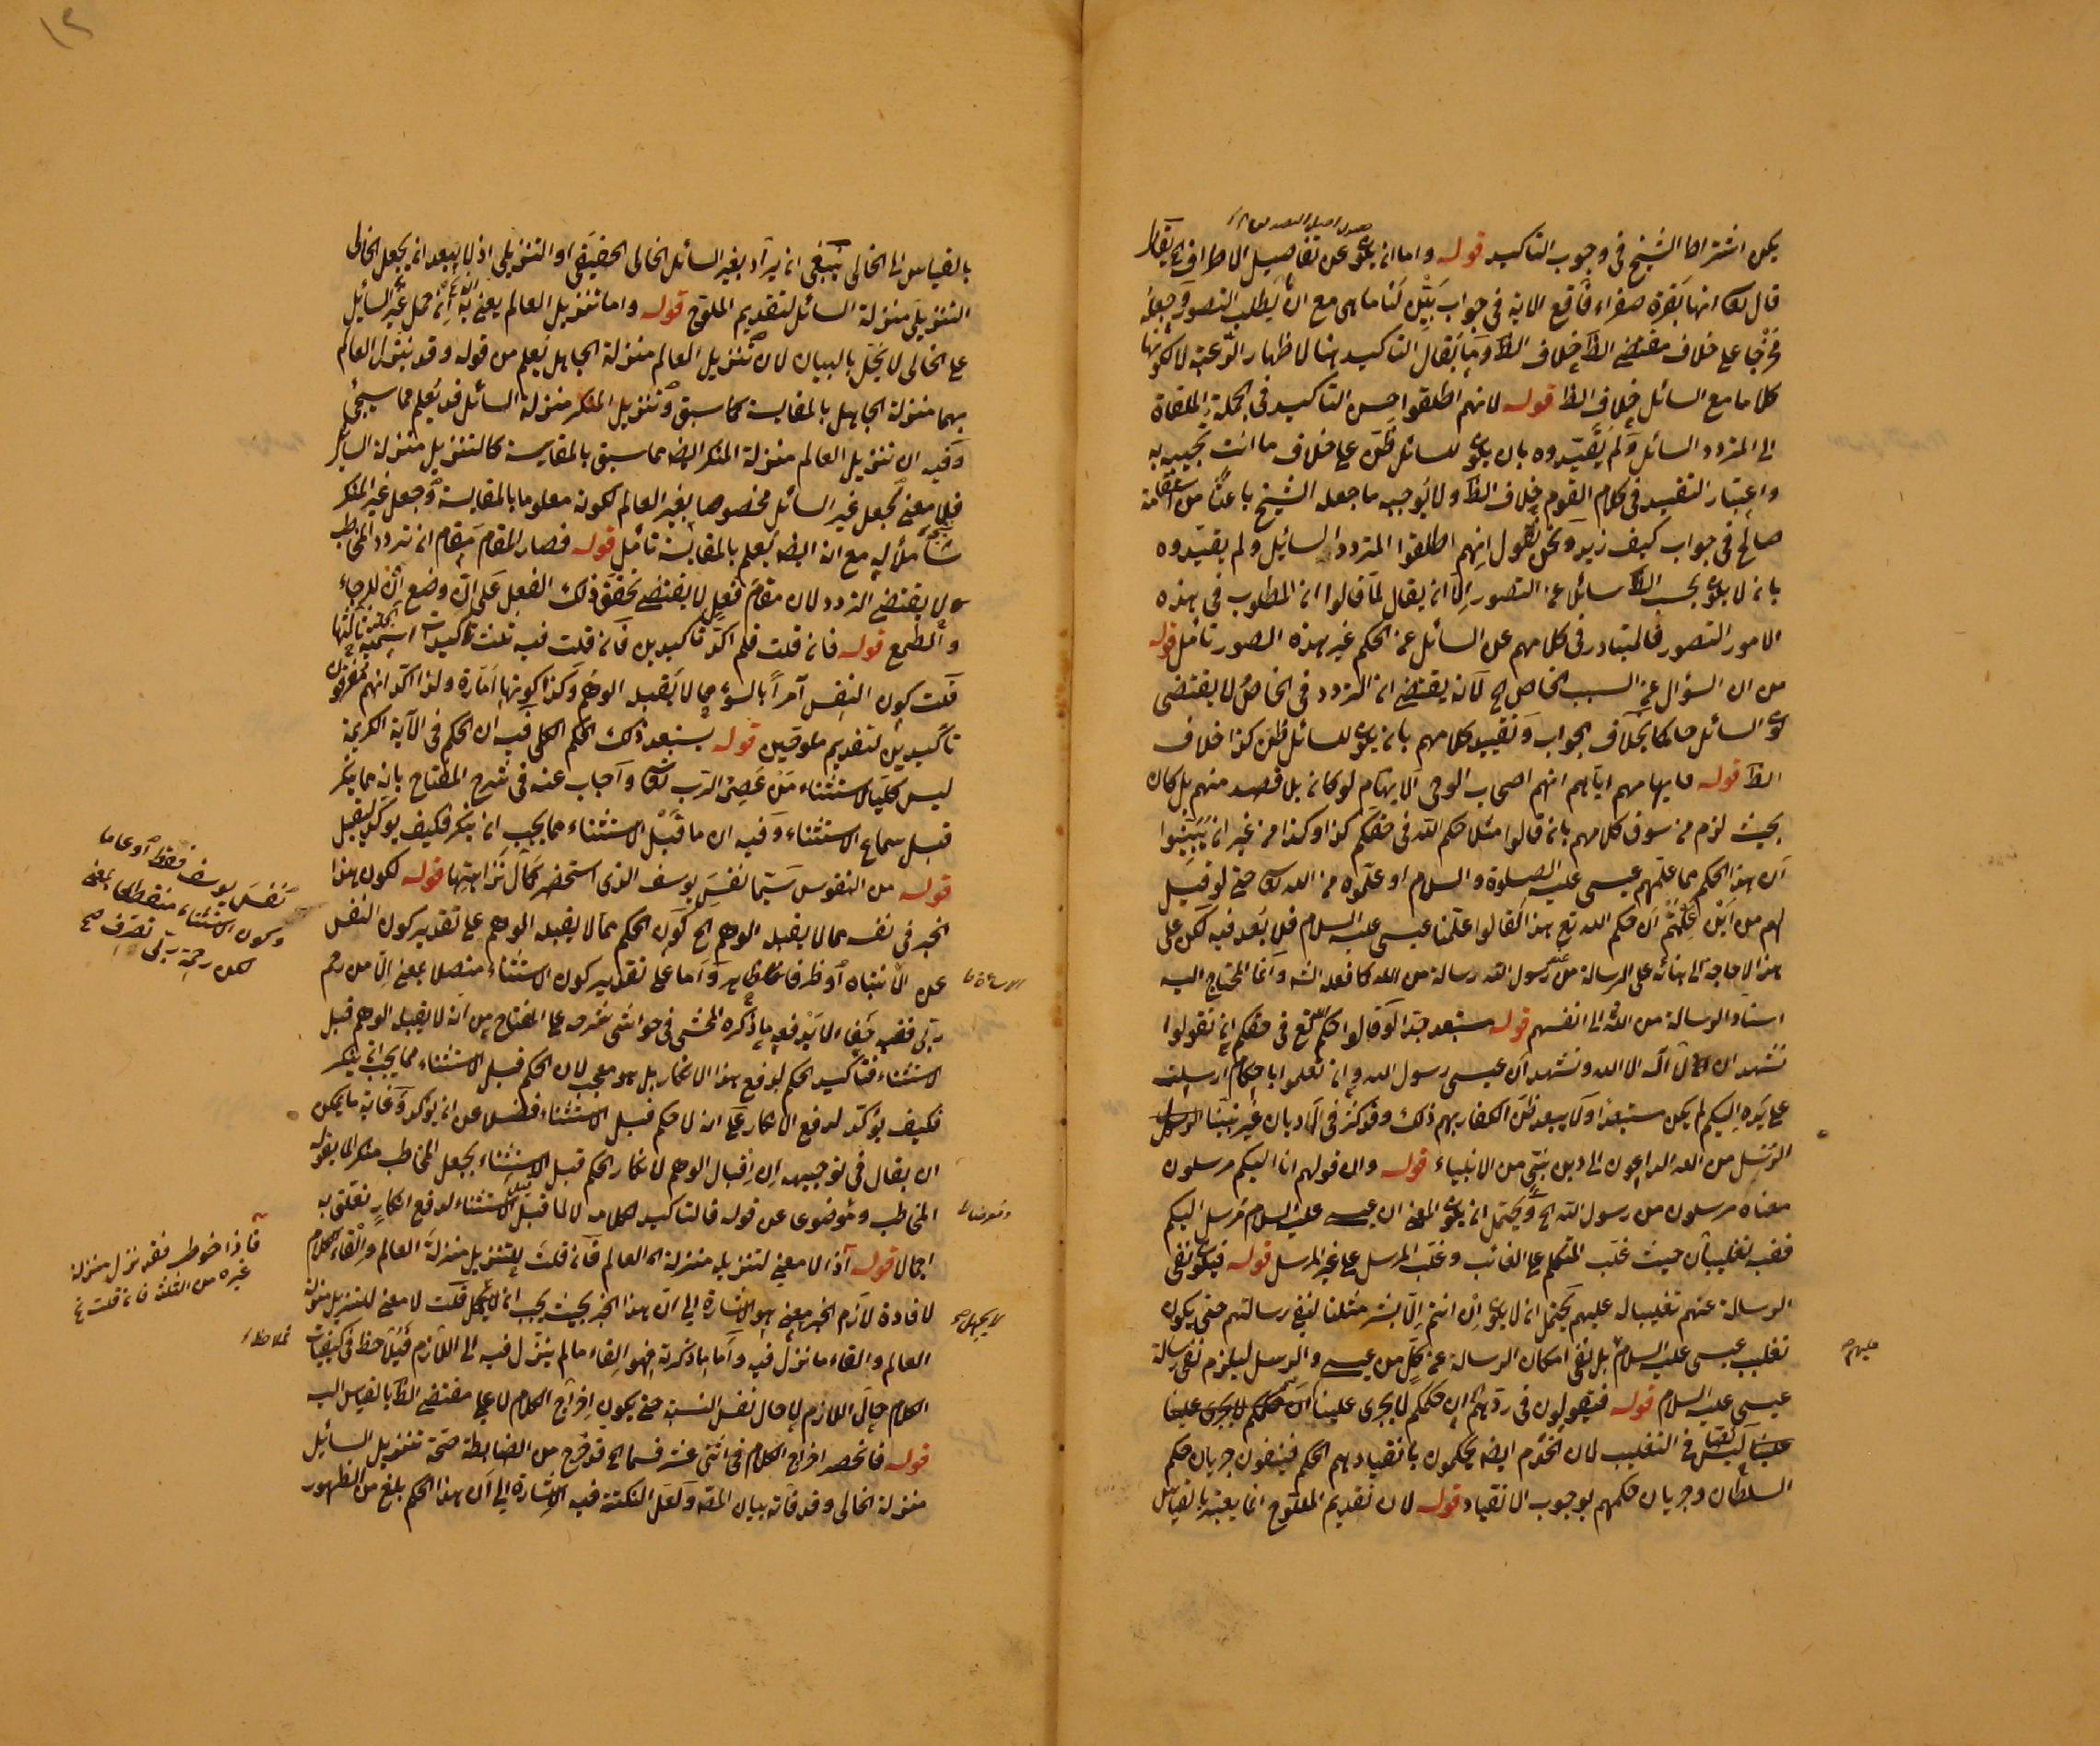 يمكن اشتراط الشيخ في وجوب التاكيد قوله واما ان يكون عن تفاصيل الاطراف الخ يقال
قال تعالى انها بقرة صفراء فاقع الاية في جواب بيّن لنا ما هي مع ان يطلب التصور وجعله
مخرجا على خلاف مقتضى الظ خلاف الظ وما يقال التاكيد هنا لاظهار الرغبة لا لكونها
كلاما مع السائل خلاف الظ قوله لانهم اطلقوا حسن التاكيد في الجملة الملقاة
الى المتردد السائل ولم يقيّدوه بان يكون للسائل ظن على خلاف ما انت تجيبه به
واعتبار التقييد في كلام القوم خلاف الظ ولا يوجبه ما جعله الشيخ باعثا من استقامة
صالح في جواب كيف زيد ونحن نقول انهم اطلقوا المتردد السائل ولم يقيّدوه
بان لا يكون بحسب الظ سائلا عن التصور الّا ان يقال لمّا قالوا ان المطلوب في هذه
الامور التصور فالمتبادر في كلامهم عن السائل عن الحكم غير هذه الصور تأمل قوله
من ان السؤال عن السبب الخاص الخ لانه يقتضي ان التردد في الخاص لا يقتضي
كون السائل حاكما بخلاف الجواب وتقييد كلامهم بان يكون للسائل ظن كذا خلاف
الظ قوله ما يهامهم اياهم انهم اصحاب الوحي الايهام لو كان بلا قصد منهم بل كان
بحيث لزم من سوق كلامهم بان قالوا مثلا حكم الله في حقكم كذا وكذا من غير ان يبيّنوا
ان هذا الحكم مما علمهم عيسى عليه الصلوة والسلام او علموه من الله تعالى حتى لو قيل
لهم من اين علمتم ان حكم الله تع هذا لقالوا علّمنا عيسى عليه السلام فلا بُعد فيه لكن على
هذا لا حاجة الى بنائه على الرسالة من رسول الله رسالة من الله كما فعله الش وانما المحتاج اليه
اسناد الرسالة من الله الى انفسهم قوله مستبعد جدا لو قالوا حكم الله تع في حقكم ان تقولوا
نشهد ان لا اله الا الله ونشهد ان عيسى رسول الله وان تعلموا باحكام ارسلت
على يده اليكم لم يكن مستبعدا ولا يبعد ظن الكفار بهم ذلك وقد كثر في الاديان غير نبينا الرسل
الرسل من الله الداعون الى دين نبي من الانبياء قوله وان قولهم انا اليكم مرسلون
معناه مرسلون من رسول الله الخ ويحتمل ان يكون المعنى ان عيسى عليه السلام مرسل اليكم
ففيه تغليبان حيث غلب المتكلم على الغائب وغلب المرسل على غير المرسل قوله فيكون نفى
الرسالة عنهم تغليبا له عليهم يحتمل ان لا يكون ان انتم الا بشر مثلنا لنفي رسالتهم حتى يكون
تغليب عيسى عليه السلام بل نفى امكان الرسالة عن كل من عيسى والرسل ليلزم نفى رسالة
عيسى عليه السلام قوله فيقولون في ردهم ان حكمكم لا يجري علينا
في التغليب لان الخدم ايضا يحكمون بانقيادهم الحكم فينفون جريان حكم
السلطان وجريان حكمهم بوجوب الانقياد قوله لان تقديم الملوح انما يعتبر بالقياس
عليهم
بالقياس الى الخالي ينبغي ان يراد بغير السائل الخالي الحقيقي او التنزيلي اذ لا يبعد ان يجعل الخالي
التنزيلي منزلة السائل لتقديم الملوح قوله واما تنزيل العالم يعني به انه حمل غير السائل
على الخالي لا يخل بالبيان لان تنزيل العالم منزلة الجاهل يعلم من قوله وقد ينزل العالم
بهما منزلة الجاهل بالمقايسة كما سبق وتنزيل المنكر منزلة السائل قد يعلم مما سيجئ
وفيه ان تنزيل العالم منزلة المنكر ايضا مما سبق بالمقايسة كالتنزيل منزلة السائل
فلا معنى لجعل غير السائل مخصوصا بغير العالم لكونه معلوما بالمقايسة وجعل غير المنكر
شاملا له مع انه ايضا يعلم بالمقايسة تأمل قوله فصار المقام مقام ان تردد المخاطب
ولا يقتضي التردد لان مقام فعل لا يقتضي تحقق ذلك الفعل على ان وضع ان للرجاء
والطمع قوله فان قلت فلم اكّد تاكيدين فان قلت فيه ثلث تاكيدات
قلت كون النفس آمرا بالسوء مما لا يقبله الوهم وكذا كونها امّارة ولذا اكد انهم مغرقون
تأكيدين لتقديم ملوحين قوله يستبعد ذلك الحكم الكلي فيه ان الحكم في الآية الكريمة
ليس كليا لاستثناء من عصى الرب تعالى واجاب عنه في شرح المفتاح بانه مما ينكر
قبل سماع الاستثناء وفيه ان ما قبل الاستثناء مما يجب ان ينكر فكيف يؤكد ليقبل
قوله من النفوس سيّما نفس يوسف الذي استحضر كمال نزاهتها قوله لكون هذا
الخبر في نفسه مما لا يقبله الوهم الخ كون الحكم مما لا يقبله الوهم على تقدير كون النفس
عن الانتباه او ظرفا ظاهر واما على تقدير كون الاستثناء متصلا بمعنى الا من رحم
ربي ففيه خفاء لا يدفعه ما ذكره المحشي في حواشي شرحه على المفتاح من انه لا يقبله الوهم قبل
الاستثناء فتأكيد الحكم لدفع هذا الانكار بل هو معجب لان الحكم قبل الاستثناء مما يجب ان ينكر
فكيف يؤكد لدفع الانكار على انه لا حكم قبل الاستثناء فضلا عن ان يؤكد وغاية ما يمكن
ان يقال في توجيهه ان اقبال الوهم لانكار الحكم قبل الاستثناء يجعل المخاطب منكرا لما يقوله
المخاطب وعوضوى عن قوله فالتاكيد لكلامه لا لما قبل الاستثناء لدفع انكار تعلق به
اجمالا قوله اذ لا معنى لتنزيله منزلة العالم فان قلت للتنزيل منزلة العالم والقاء الكلام
لافادة لازم الخبر معنى هو الاشارة الى ان هذا الخبر بحيث يجب ان لا يجهل قلت لا معنى للتنزيل منزلة
العالم والقاء ما نزل فيه واما ما ذكرته فهو القاء ما لم ينزل فيه الى اللازم فيلاحظ في كيفيات
الكلام حال اللازم لا حال نفس النسبة حتى يكون اخراج الكلام لا على مقتضى الظ بالقياس اليه
قوله فانحصر اخراج الكلام في اثنى عشر قسما الخ قد خرج من الضابطة صحة تنزيل السائل
منزلة الخالي وقد فاته بيان المص ولعل النكتة فيه الاشارة الى ان هذا الحكم بلغ من الظهور
نفس يوسف فقط او عاما
وكون الاستثناء منقطعا بمعنى
لكن رحمة ربي تصرف صح
لا يجهل
فاذا خوطب فقد نزل منزلة
غيره من الثلثة فان قلت
١٢